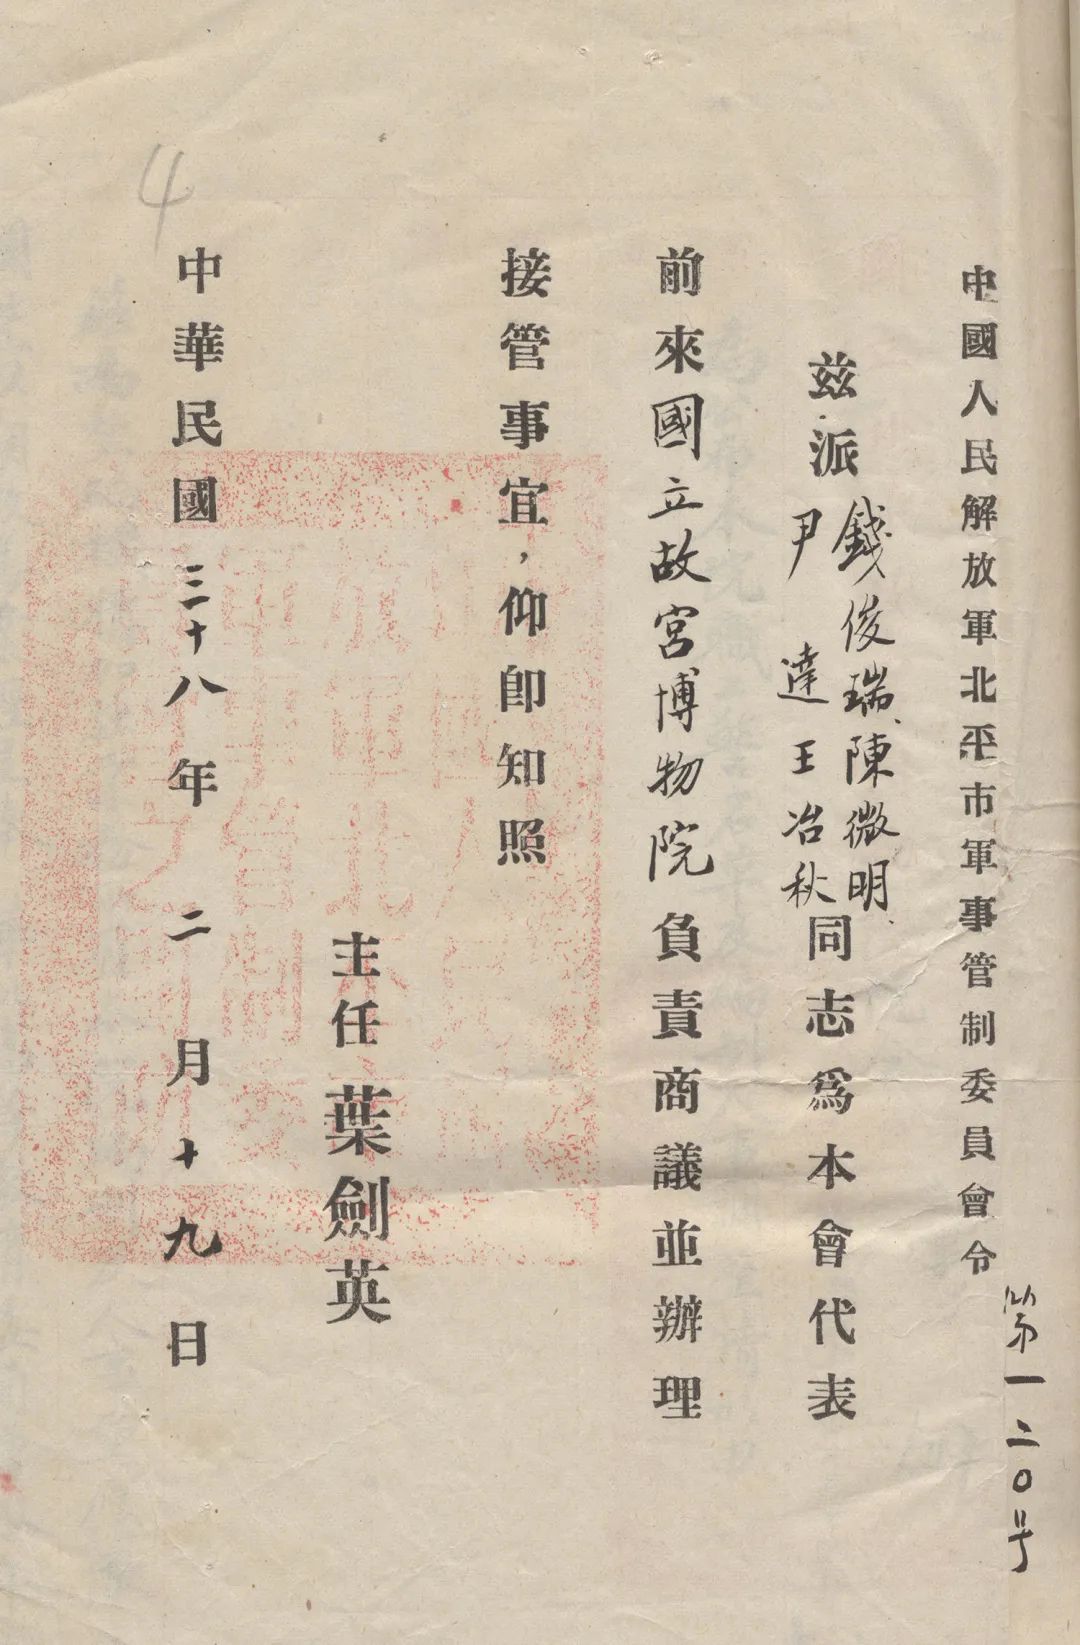 中國人民解放軍北平市軍事管制委員會令
第一二〇号
茲派錢俊瑞、陳微明、
尹達王冶秋同志爲本會代表
前來國立故宮博物院負責商議並辦理
接管事宜，仰卽知照
主任葉劍英
中華民國三十八年二月十九日
4